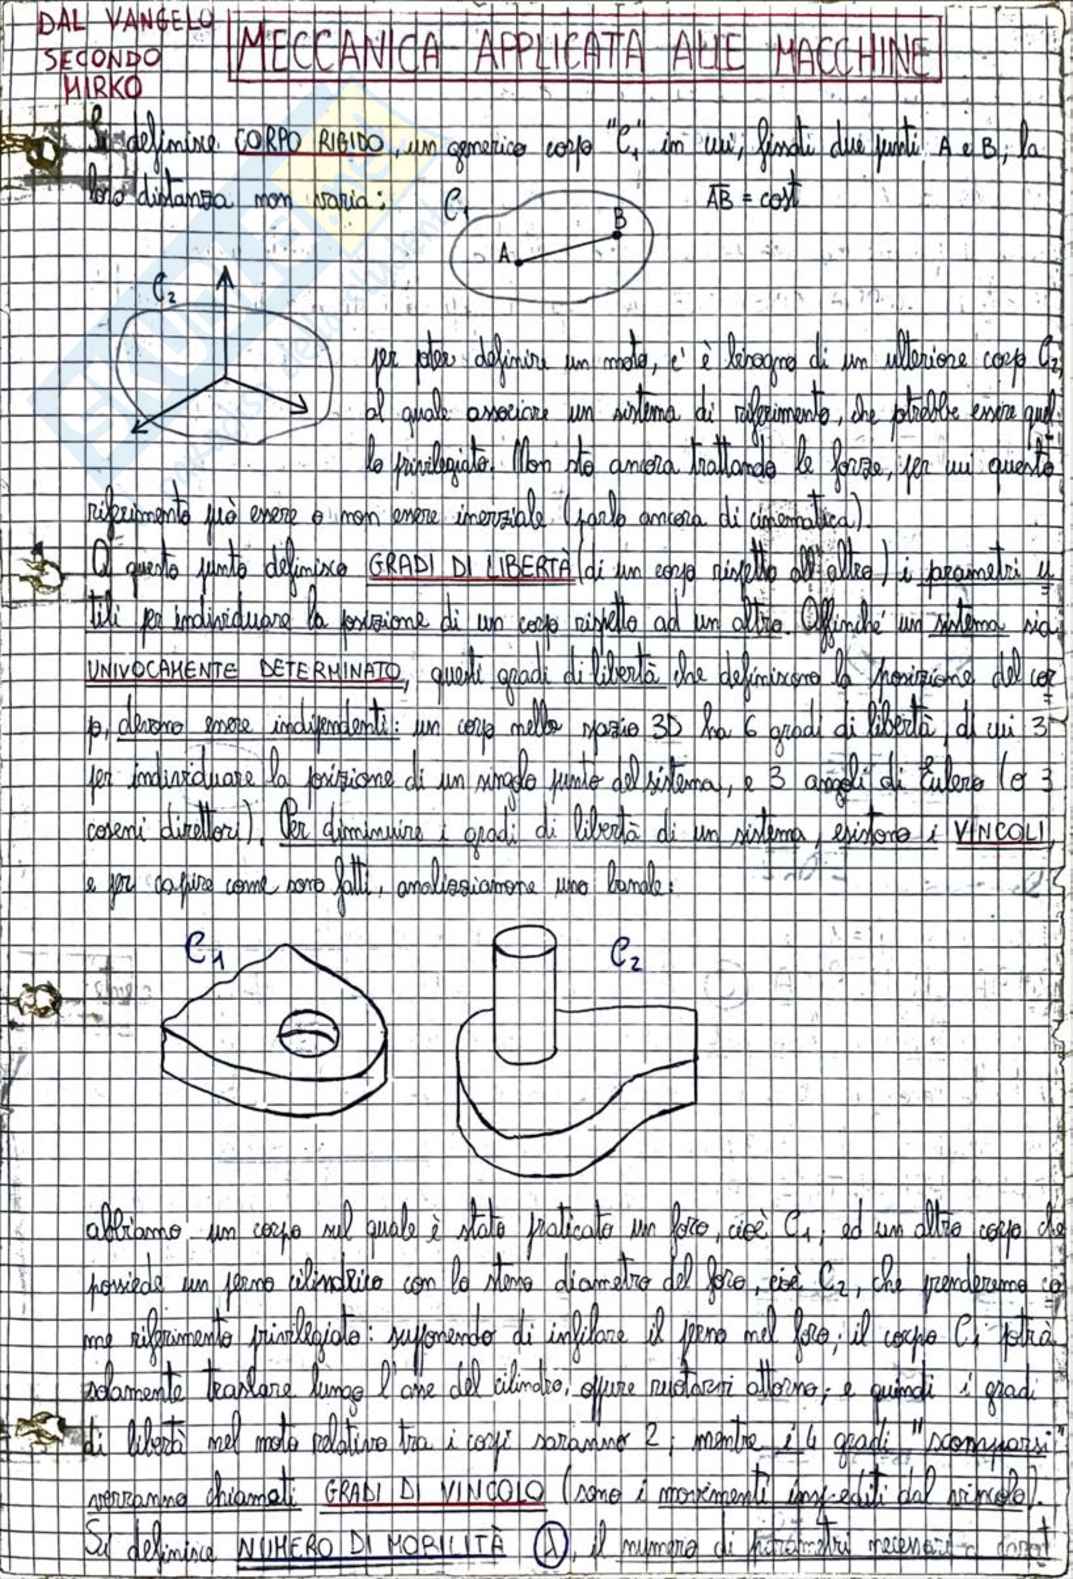 DAL VANGELO
SECONDO
MIRKO
MECCANICA APPLICATA ALLE MACCHINE
Si definisce CORPO RIGIDO, un generico corpo "C1" in cui, fissati due punti A e B, la
loro distanza non varia:
C1
A
B
AB = cost
C2
per poter definire un moto, c'è bisogno di un ulteriore corpo C2,
al quale associare un sistema di riferimento, che potrebbe essere quel
lo privilegiato. Non sto ancora trattando le forze, per cui questo
riferimento può essere o non essere inerziale (parlo ancora di cinematica).
A questo punto definisco GRADI DI LIBERTÀ (di un corpo rispetto all'altro) i prametri u
tili per individuare la posizione di un corpo rispetto ad un altro. Affinché un sistema sia
UNIVOCAMENTE DETERMINATO, questi gradi di libertà che definiscono la posizione del cor
po, devono essere indipendenti: un corpo nello spazio 3D ha 6 gradi di libertà, di cui 3
per individuare la posizione di un singolo punto del sistema, e 3 angoli di Eulero (o 3
coseni direttori). Per diminuire i gradi di libertà di un sistema, esistono i VINCOLI,
e per capire come sono fatti, analizziamone uno banale:
C1
C2
abbiamo un corpo sul quale è stato praticato un foro, cioè C1, ed un altro corpo che
possiede un perno cilindrico con lo stesso diametro del foro, cioè C2, che prenderemo co
me riferimento privilegiato: supponendo di infilare il perno nel foro, il corpo C1 potrà
solamente traslare lungo l'asse del cilindro, oppure ruotarvi attorno, e quindi i gradi
di libertà nel moto relativo tra i corpi saranno 2, mentre i 4 gradi "scomparsi"
verranno chiamati GRADI DI VINCOLO (sono i movimenti impediti dal vincolo).
Si definisce NUMERO DI MOBILITÀ λ, il numero di parametri necessari a